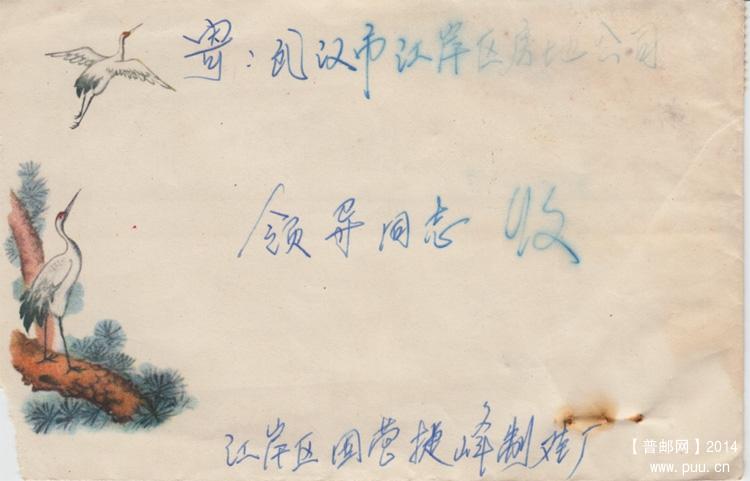 寄：武汉市江岸区房地公司
领导同志 收
江岸区国营捷峰制鞋厂
【普邮网】2014
www.puu.cn